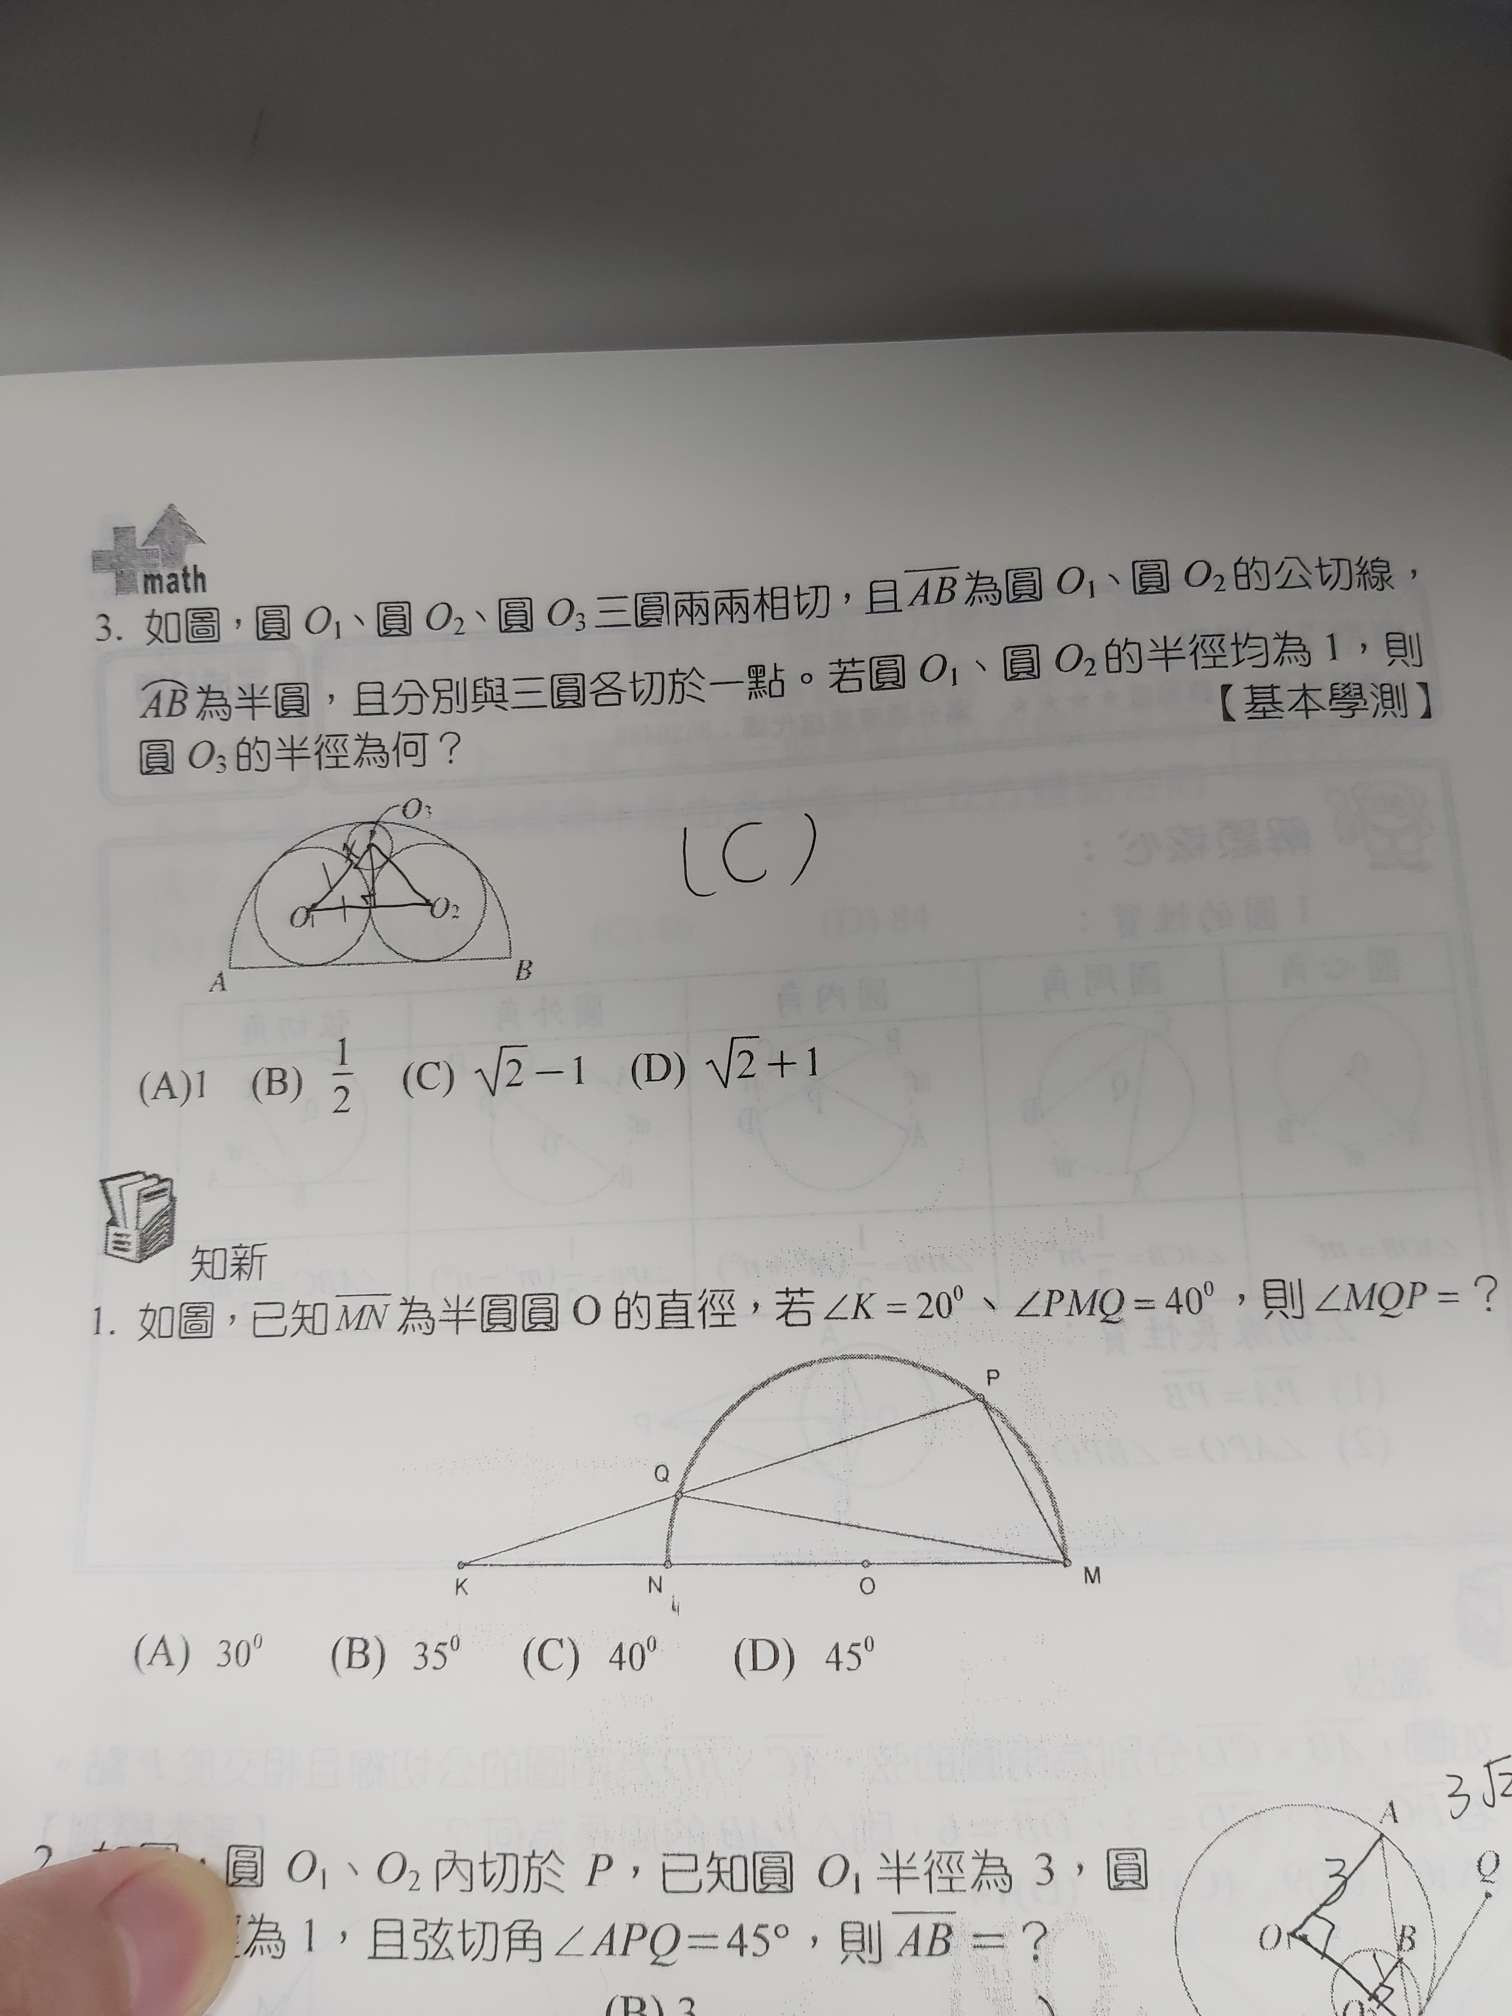 math
3. 如圖，圓 O₁、圓 O₂、圓 O₃ 三圓兩兩相切，且 AB 為圓 O₁、圓 O₂ 的公切線，
AB 為半圓，且分別與三圓各切於一點。若圓 O₁、圓 O₂ 的半徑均為 1，則
圓 O₃ 的半徑為何？ 【基本學測】
O₃
(C)
O₁ O₂
A B
(A)1 (B) 1/2 (C) √2−1 (D) √2+1
知新
1. 如圖，已知 MN 為半圓圓 O 的直徑，若 ∠K = 20⁰、∠PMQ = 40⁰，則 ∠MQP = ？
P
Q
K N O M
(A) 30⁰ (B) 35⁰ (C) 40⁰ (D) 45⁰
2. 圓 O₁、O₂ 內切於 P，已知圓 O₁ 半徑為 3，圓
為 1，且弦切角 ∠APQ=45°，則 AB = ？
(B) 3
3√2
A
3
Q
O₁ B